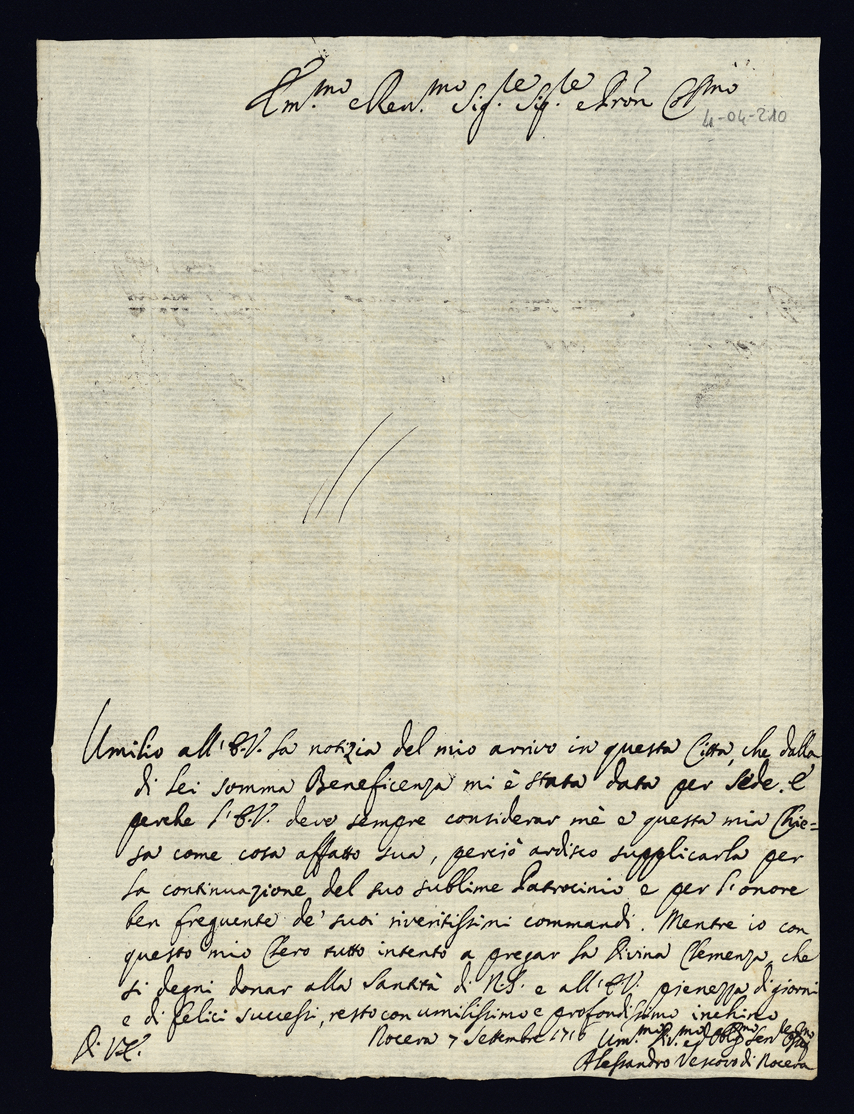 Em.mo e Rev.mo Sig.re Sig.re e Pron Col.mo
4-04-210
Umilio all'E.V. la notizia del mio arrivo in questa Città, che dalla
di Lei somma Beneficenza mi è stata data per Sede. E
perche l'E.V. deve sempre considerar mè e questa mia Chie=
sa come cosa affatto sua, perciò ardisco supplicarla per
la continuazione del suo sublime Patrocinio e per l'onore
ben frequente de' suoi riveritissimi commandi. Mentre io con
questo mio Clero tutto intento a pregar la Divina Clemenza, che
si degni donar alla Santità di N.S. e all'E.V. pienezza di giorni
e di felici successi, resto con umilissimo e profondissimo inchino
Di V.E.
Nocera 7 Settembre 1716 Um.mo Div.mo ed Obl.mo Ser.re
Alessandro Vescovo di Nocera